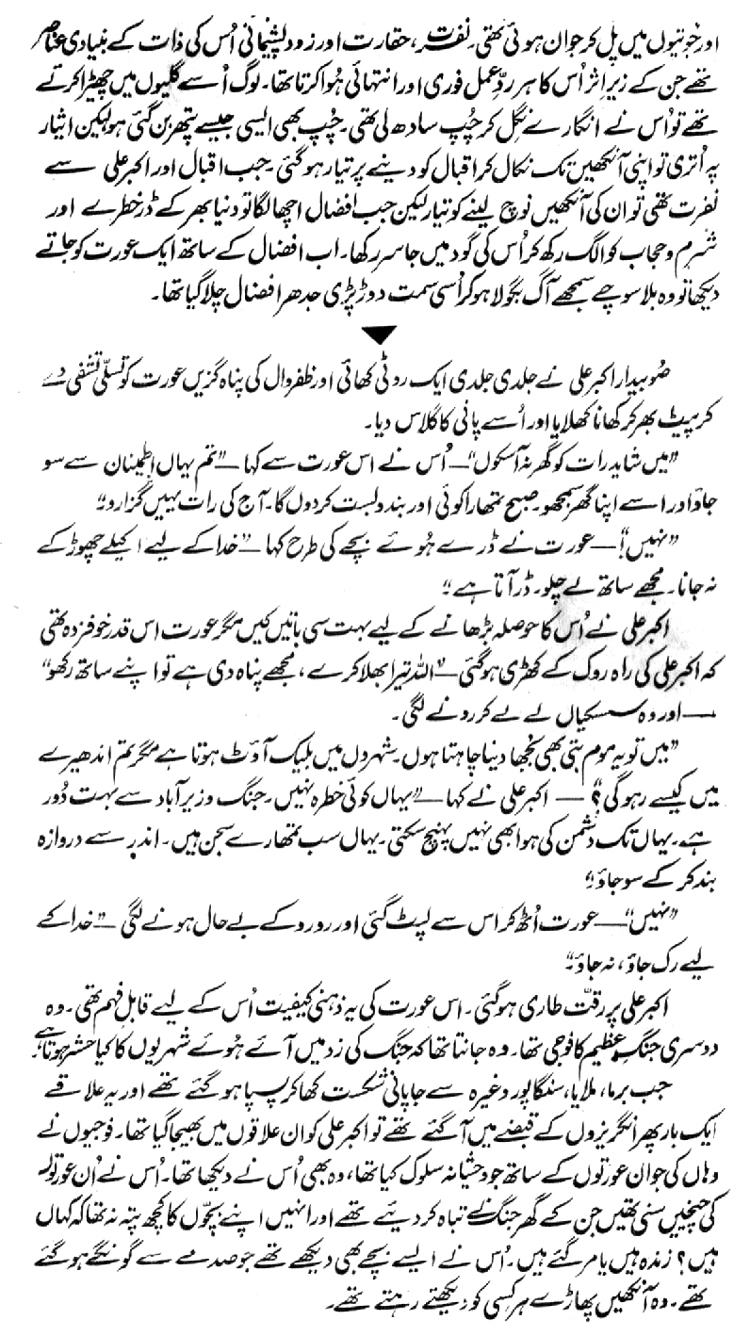 اور خوبیوں میں پل کر جوان ہوئی تھی۔ نفرت، حقارت اور زود پشیمانی اُس کی ذات کے بنیادی عناصر
تھے جن کے زیرِ اثر اُس کا ہر ردِّ عمل فوری اور انتہائی ہُوا کرتا تھا۔ لوگ اُسے گلیوں میں چھیڑا کرتے
تھے تو اُس نے انگارے نگل کر چُپ سادھ لی تھی۔ چُپ بھی ایسی جیسے پتھر بن گئی ہو لیکن ایثار
پہ اُتری تو اپنی آنکھیں تک نکال کر اقبال کو دینے پر تیار ہو گئی۔ جب اقبال اور اکبر علی سے
نفرت تھی تو ان کی آنکھیں نوچ لینے کو تیار لیکن جب افضال اچھا لگا تو دنیا بھر کے ڈر خطرے اور
شرم و حجاب کو الگ رکھ کر اُس کی گود میں جا سر رکھا۔ اب افضال کے ساتھ ایک عورت کو جاتے
دیکھا تو وہ بلا سوچے سمجھے آگ بگولا ہو کر اُسی سمت دوڑ پڑی جدھر افضال چلا گیا تھا۔
صُوبیدار اکبر علی نے جلدی جلدی ایک روٹی کھائی اور ظفروال کی پناہ گزیں عورت کو تسلّی تشفی دے
کر پیٹ بھر کر کھانا کھلایا اور اُسے پانی کا گلاس دیا۔
”میں شاید رات کو گھر نہ آ سکوں“ — اُس نے اس عورت سے کہا — ”تم یہاں اطمینان سے سو
جاؤ اور اسے اپنا گھر سمجھو۔ صبح تمھارا کوئی اور بندوبست کر دوں گا۔ آج کی رات یہیں گزارو۔“
”نہیں!“ — عورت نے ڈرے ہُوئے بچے کی طرح کہا — ”خدا کے لیے اکیلے چھوڑ کے
نہ جانا۔ مجھے ساتھ لے چلو۔ ڈر آتا ہے۔“
اکبر علی نے اُس کا حوصلہ بڑھانے کے لیے بہت سی باتیں کیں مگر عورت اس قدر خوفزدہ تھی
کہ اکبر علی کی راہ روک کے کھڑی ہو گئی — ”اللہ تیرا بھلا کرے، مجھے پناہ دی ہے تو اپنے ساتھ رکھو“
— اور وہ سسکیاں لے لے کر رونے لگی۔
”میں تو یہ موم بتی بھی بُجھا دینا چاہتا ہوں۔ شہروں میں بلیک آؤٹ ہوتا ہے مگر تم اندھیرے
میں کیسے رہو گی؟“ — اکبر علی نے کہا — ”یہاں کوئی خطرہ نہیں۔ جنگ وزیر آباد سے بہت دُور
ہے۔ یہاں تک دشمن کی ہوا بھی نہیں پہنچ سکتی۔ یہاں سب تمھارے سجن ہیں۔ اندر سے دروازہ
بند کر کے سو جاؤ۔“
”نہیں“ — عورت اُٹھ کر اس سے لپٹ گئی اور رو رو کے بے حال ہونے لگی — ”خدا کے
لیے رک جاؤ، نہ جاؤ۔“
اکبر علی پر رقّت طاری ہو گئی۔ اس عورت کی یہ ذہنی کیفیت اُس کے لیے قابلِ فہم تھی۔ وہ
دوسری جنگِ عظیم کا فوجی تھا۔ وہ جانتا تھا کہ جنگ کی زد میں آئے ہُوئے شہریوں کا کیا حشر ہوتا ہے۔
جب برما، ملایا، سنگاپور وغیرہ سے جاپانی شکست کھا کر پسپا ہو گئے تھے اور یہ علاقے
ایک بار پھر انگریزوں کے قبضے میں آ گئے تھے تو اکبر علی کو ان علاقوں میں بھیجا گیا تھا۔ فوجیوں نے
وہاں کی جوان عورتوں کے ساتھ جو وحشیانہ سلوک کیا تھا، وہ بھی اُس نے دیکھا تھا۔ اُس نے اُن عورتوں
کی چیخیں سنی تھیں جن کے گھر جنگ نے تباہ کر دیئے تھے اور انہیں اپنے بچّوں کا کچھ پتہ نہ تھا کہ کہاں
ہیں؟ زندہ ہیں یا مر گئے ہیں۔ اُس نے ایسے بچے بھی دیکھے تھے جو صدمے سے گونگے ہو گئے
تھے۔ وہ آنکھیں پھاڑے ہر کسی کو دیکھتے رہتے تھے۔